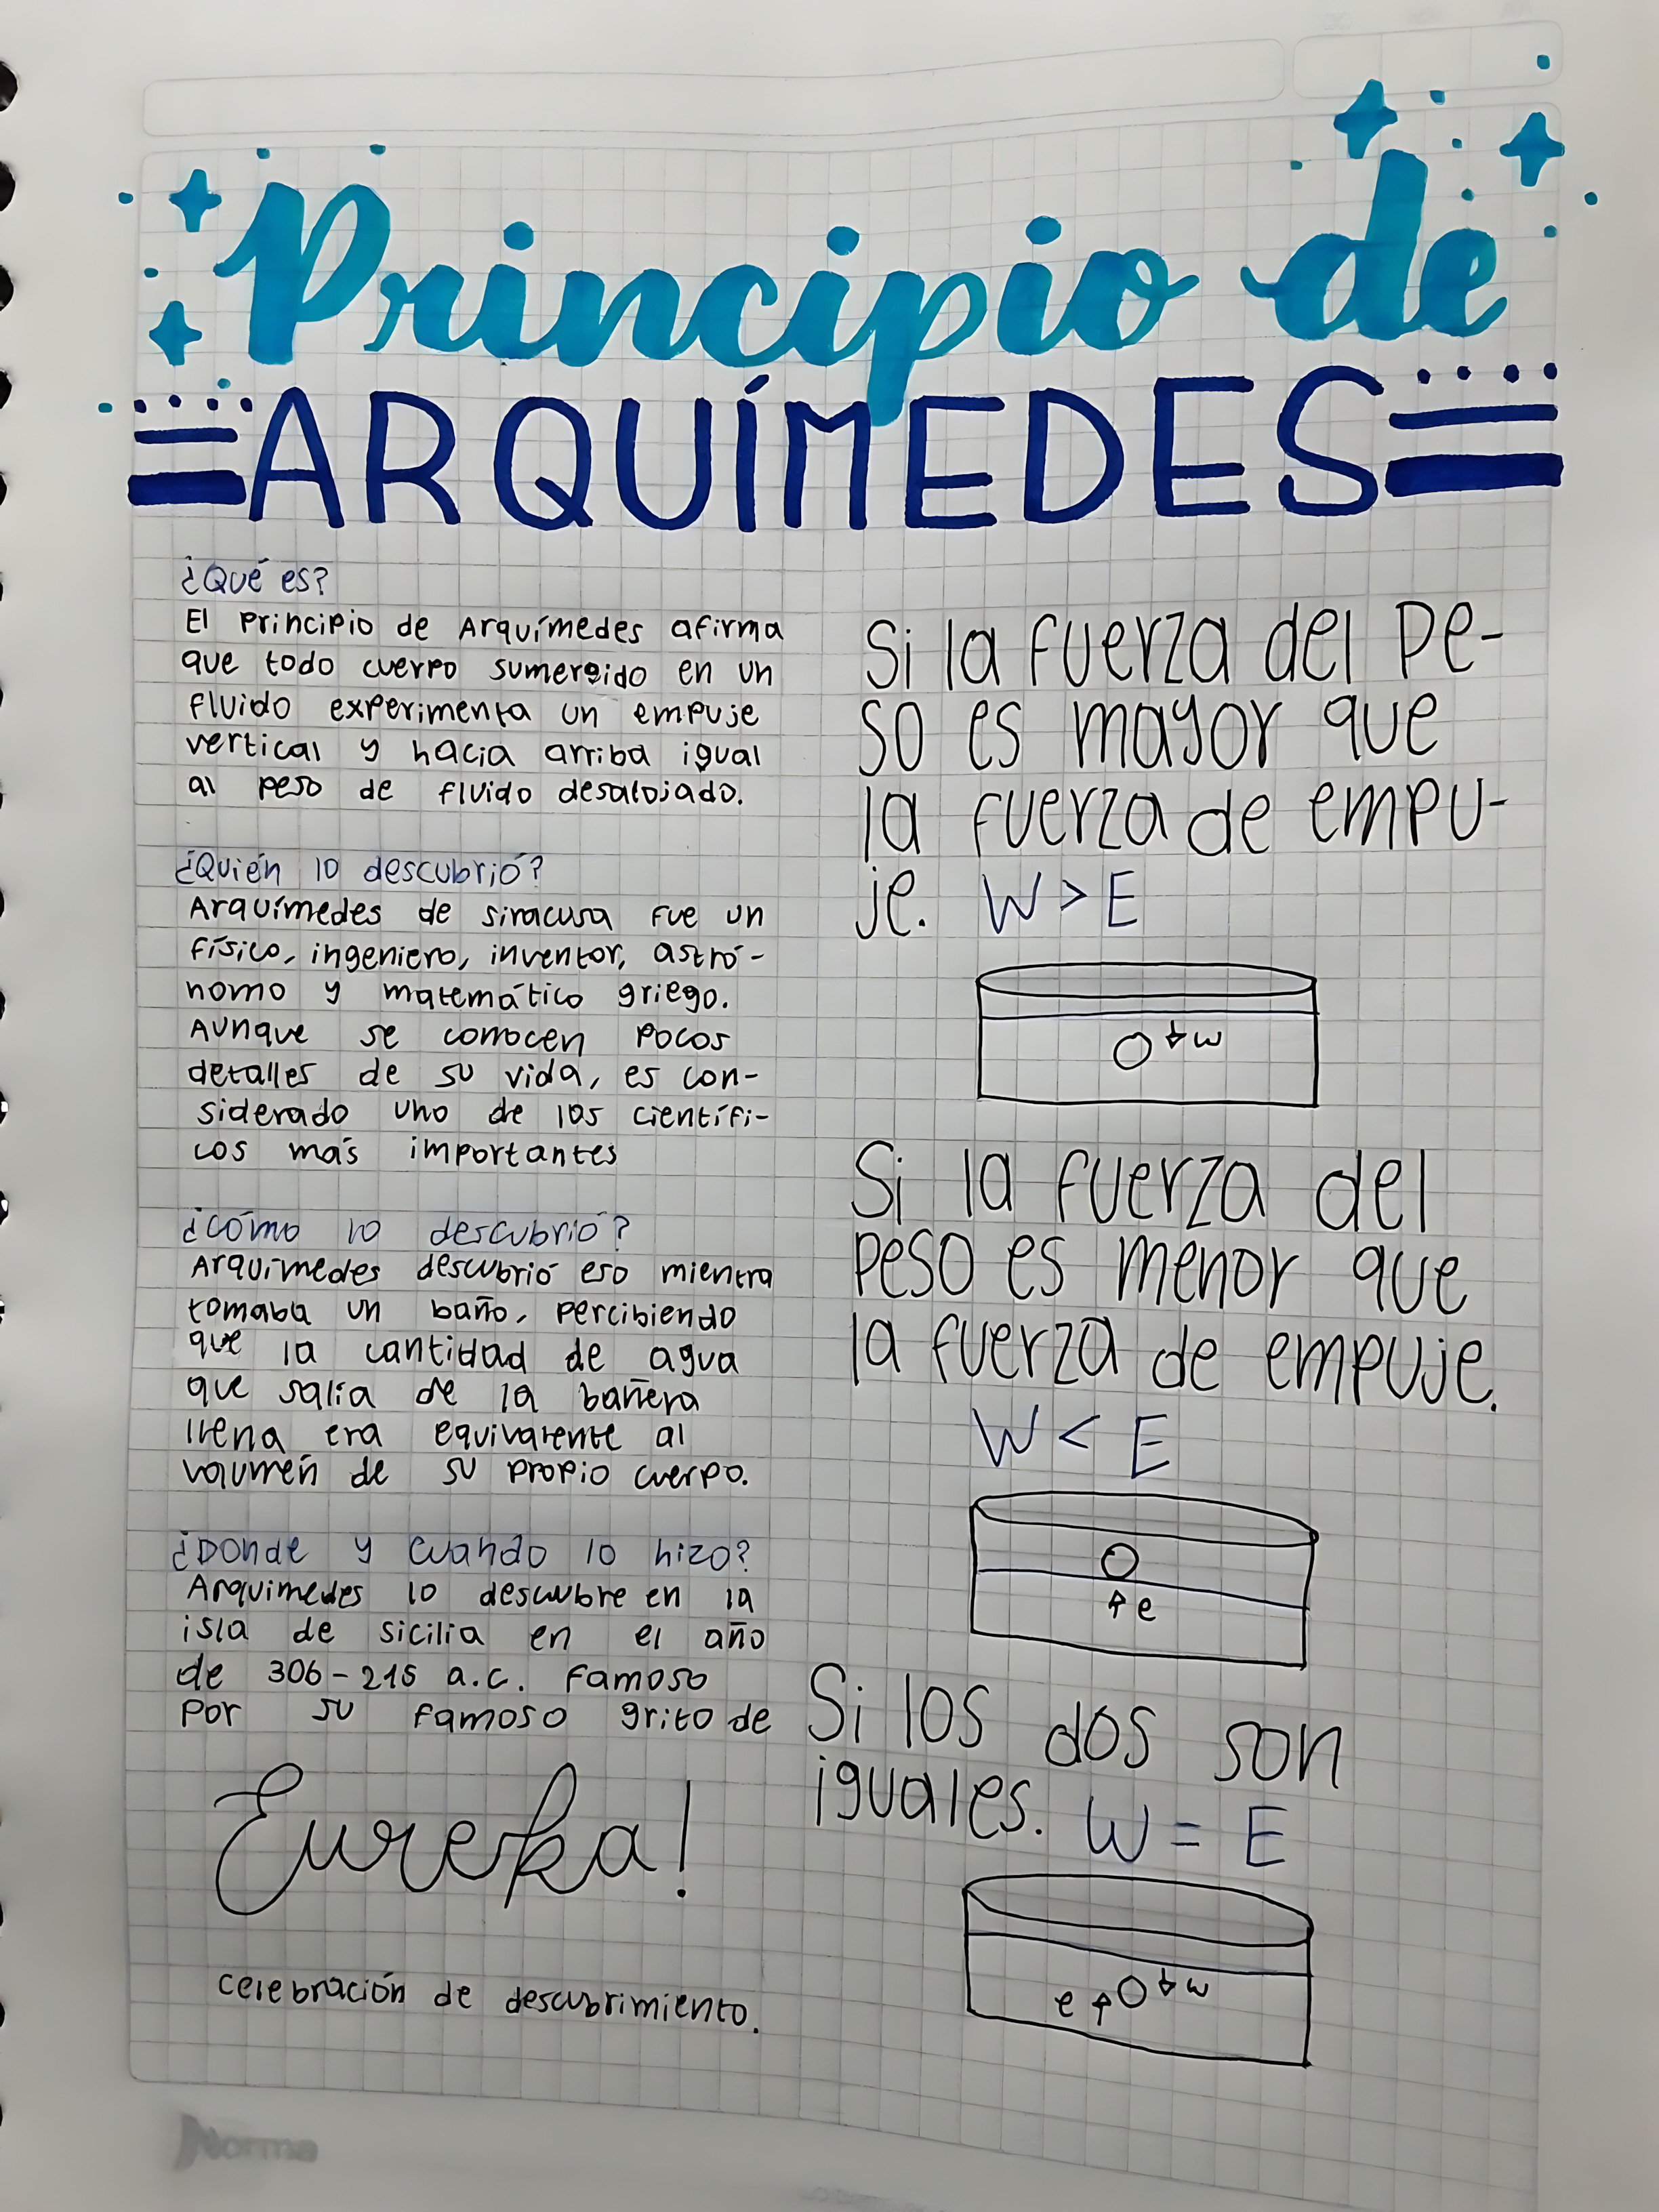 Principio de
ARQUÍMEDES
¿Qué es?
El Principio de Arquímedes afirma
que todo cuerpo sumergido en un
fluido experimenta un empuje
vertical y hacia arriba igual
al peso de fluido desalojado.
¿Quién lo descubrió?
Arquímedes de siracusa fue un
físico, ingeniero, inventor, astró-
nomo y matemático griego.
Aunque se conocen pocos
detalles de su vida, es con-
siderado uno de los científi-
cos más importantes
¿Cómo lo descubrió?
Arquímedes descubrió eso mientra
tomaba un baño, percibiendo
que la cantidad de agua
que salía de la bañera
llena era equivalente al
volumen de su propio cuerpo.
¿Donde y cuando lo hizo?
Arquimedes lo descubre en la
isla de sicilia en el año
de 306-215 a.c. Famoso
Por su famoso grito de
Eureka!
celebración de descubrimiento.
Si la fuerza del pe-
so es mayor que
la fuerza de empu-
je. W > E
w
Si la fuerza del
peso es menor que
la fuerza de empuje.
W < E
e
Si los dos son
iguales. W = E
e w
Norma